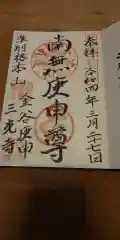 奉拝 令和四年三月二十七日
南無庚申尊
準別格本山
金谷庚申
三光寺